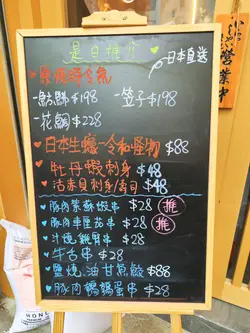 是日推介
日本直送
營業中
$198
笠子 $198
花鯛 $228
日本生蠔 令和怪物 $88
牡丹蝦刺身 $48
活赤貝刺身/壽司 $48
豚肉紫蘇蝦串 $28 推
豚肉車厘茄串 $28 推
汁燒雞腎串 $28
牛舌串 $28
鹽燒油甘魚鮫 $88
豚肉鵪鶉蛋串 $28